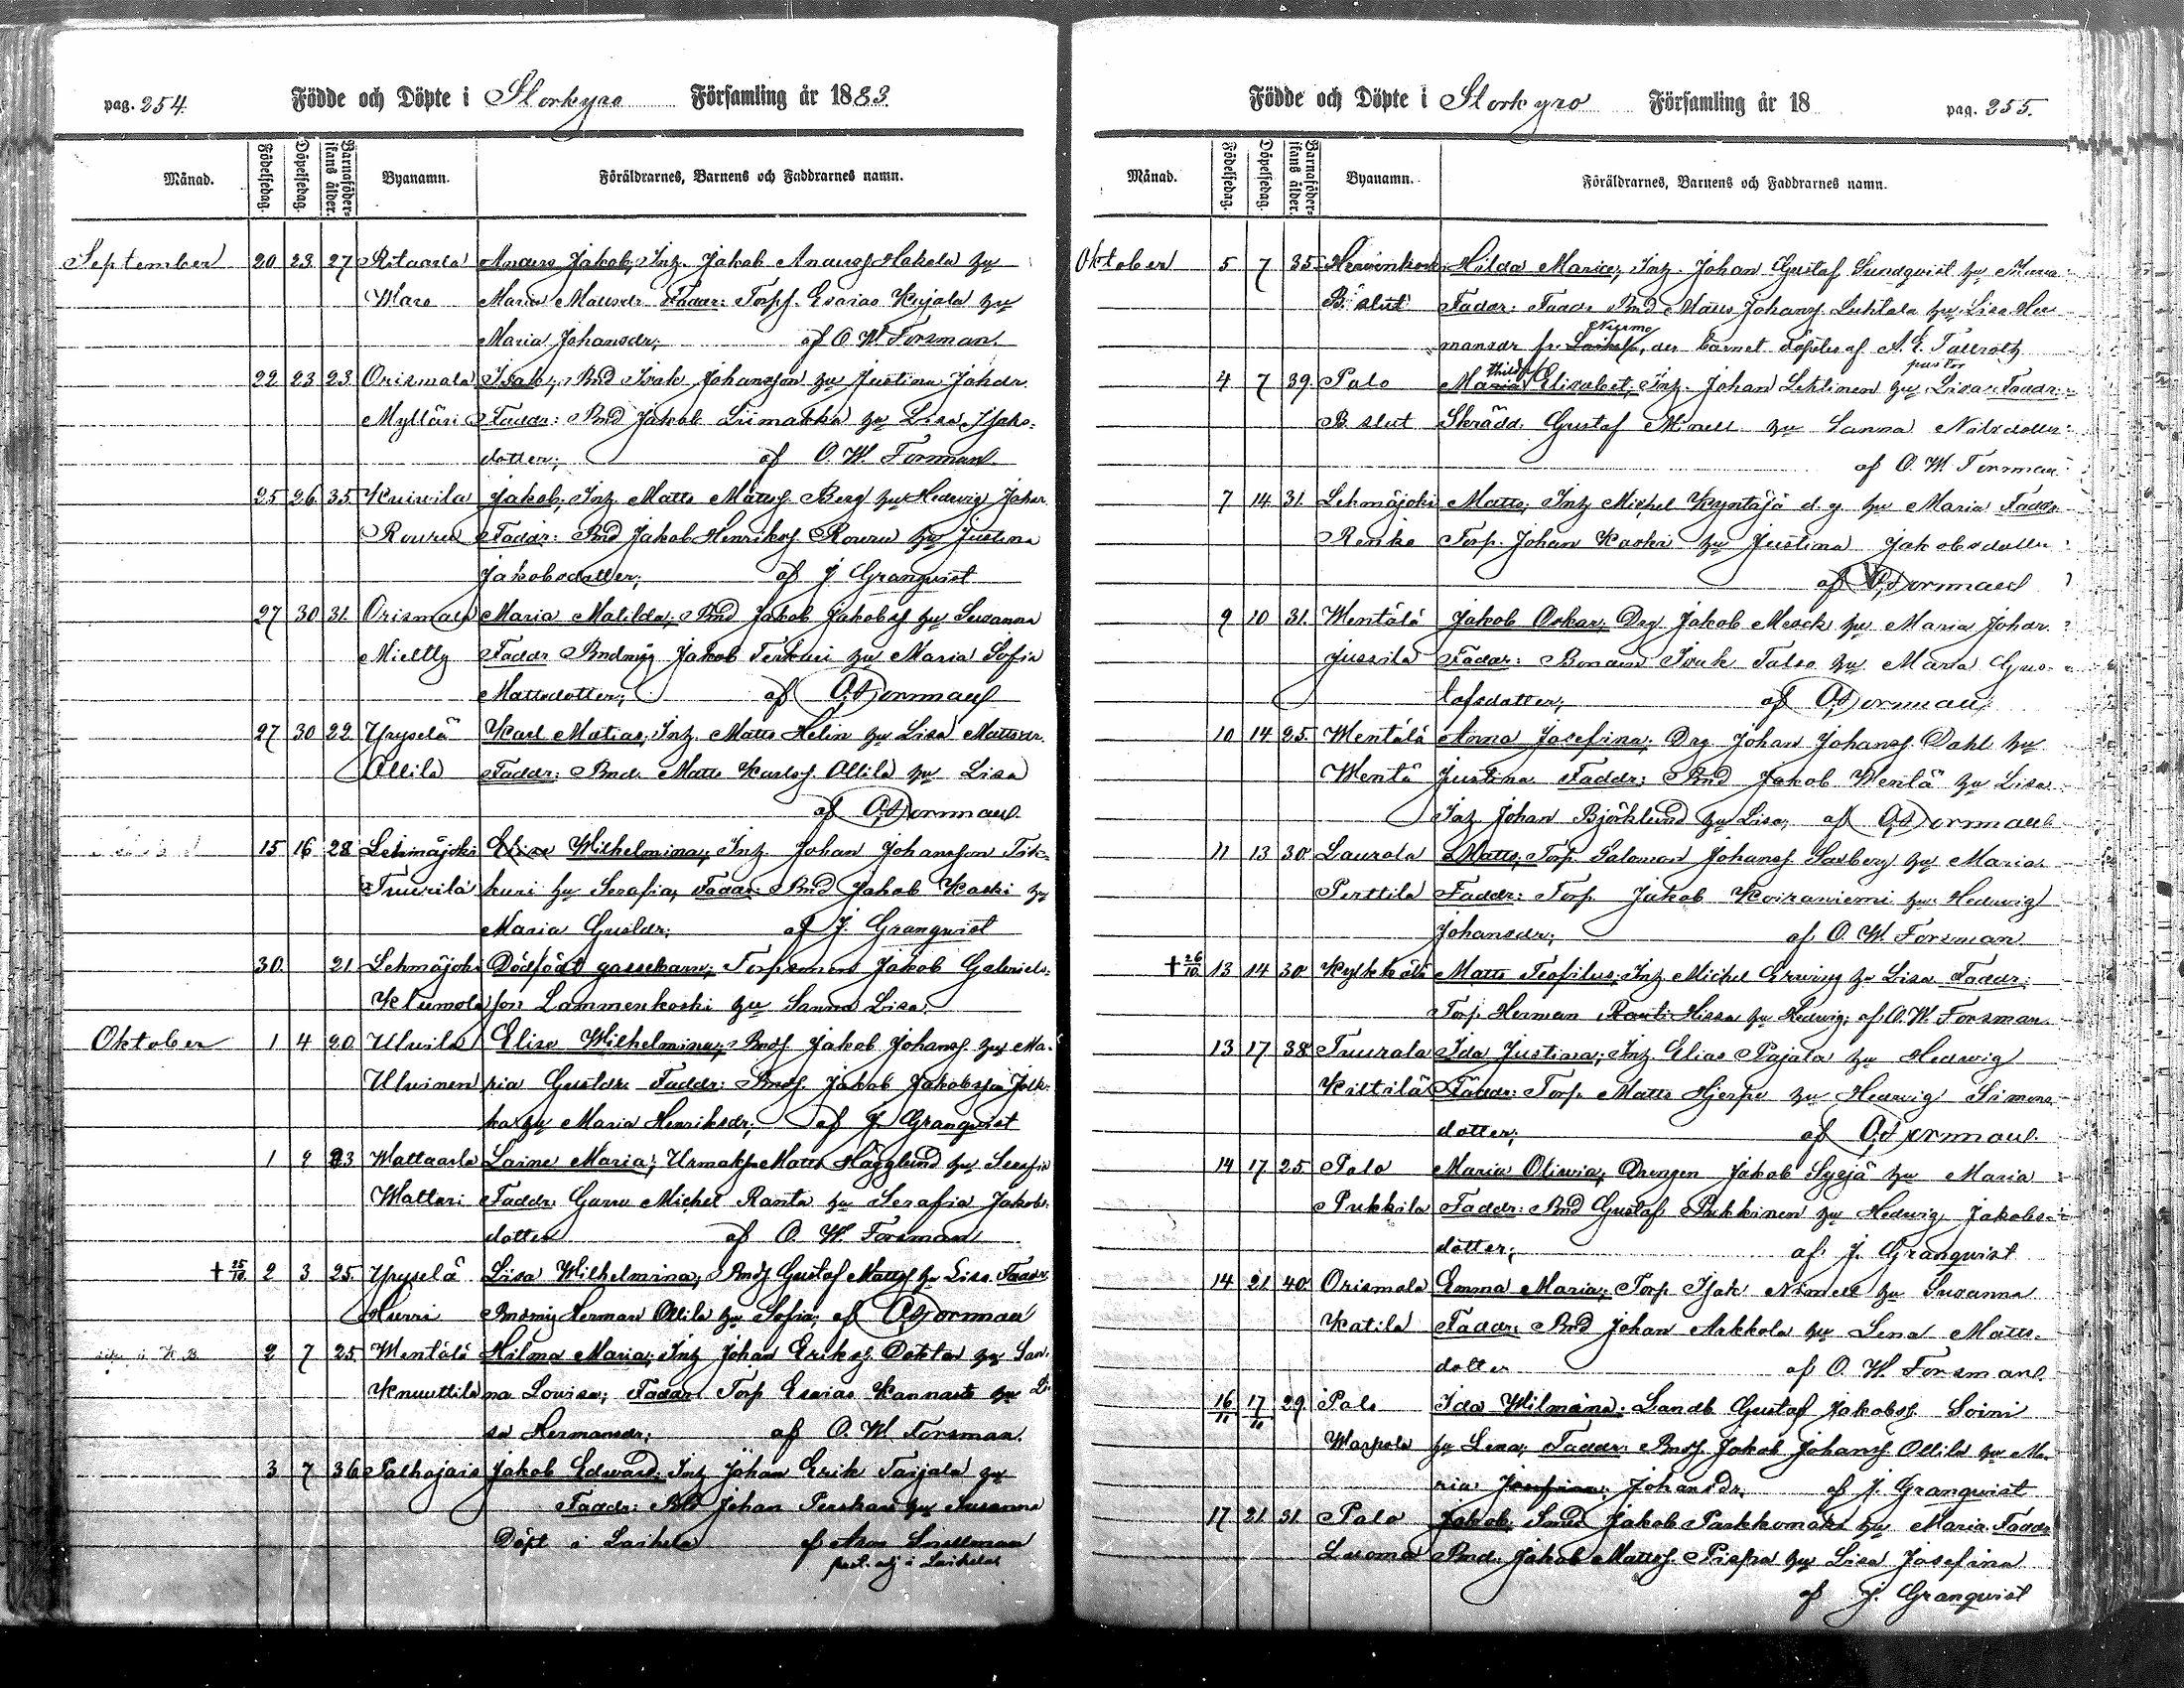 pag. 254. Födde och Döpte i Storkyro Församling år 1883.
Månad. Födelsedag. Döpelsedag. Barnaföderskans ålder. Byanamn. Föräldrarnes, Barnens och Faddrarnes namn.
September 20 23 27 Ritaala Anders Jakob; Inh. Jakob Andersf Hakola hu
Maria Mattsdr Faddr: Torpf. Esaias Kujala hu
Maria Johansdr; af O. W. Forsman.
22 23 23 Orismala Isak; Bnd Isak Johansson hu Justina Johdr.
Mylläri Faddr: Bnd Jakob Liimakka hu Lisa
dotter; af O. W. Forsman.
25 26 35 Kuivila Jakob; Inh. Matts Mattsf. Berg hu Hedvig Johdr.
Rouru Faddr: Bnd Jakob Henriksf. Rouru hu Justina
Jakobsdotter; af J. Granqvist
27 30 31 Orismala Maria Matilda; Bnd Jakob Jakobsf hu Susanna
Mieltty Faddr Bndmåg Jakob hu Maria Sofia
Mattsdotter; af O. W. Forsman
27 30 22 Yryselä Karl Matias; Inh. Matts Helin hu Lisa Mattsdr.
Ollila Faddr: Bnd. Matts Karlsf. Ollila hu Lisa
af O. W. Forsman
15 16 28 Lehmäjoki Elisa Wilhelmina; Inh. Johan Johansson Tik-
Tuurila kuri hu Serafia; Faddr: Bnd Jakob Kaski hu
Maria Gustdr; af J. Granqvist
30. 21 Lehmäjoki Dödfödt gossebarn; Torpsonen Jakob Gabriels-
Kliemola son Lammenkoski hu Sanna Lisa.
Oktober 1 4 20 Ulvila Elisa Wilhelmina; Bndf. Jakob Johansf. hu Ma-
Ulvinen ria Gustdr. Faddr: Bndf. Jakob Jakobsson
hu Maria Henriksdr; af J. Granqvist
1 9 23 Wallaarla Laine Maria; Urmak. Matts Hägglund hu Serafia
Waltari Faddr. Garv Michel Ranta hu Serafia Jakobs-
dotter af O. W. Forsman
+ 25/10 2 3 25. Yryselä Lisa Wilhelmina; Bndf Gustaf Mattsf hu Lisa Faddr.
Hurri Bndmåg Herman Ollila hu Sofia; af O. W. Forsman
2 7 25. Wentälä Hilma Maria; Inh Johan Eriksf. Doktar hu San-
Knuuttila na Lovisa; Faddr Torp Esaias Kannasto hu Li-
sa Hermansdr; af O. W. Forsman.
3 7 36 Palhojais Jakob Edward; Inh Johan Erik Taijala hu
Faddr: Bnd Johan hu Susanna
Döpt i Laihela af Aron Snellman
past. adj i Laihela
Födde och Döpte i Storkyro Församling år 18 pag. 255.
Månad. Födelsedag. Döpelsedag. Barnaföderskans ålder. Byanamn. Föräldrarnes, Barnens och Faddrarnes namn.
Oktober 5 7 35. Hevonkoski Hilda Maria; Inh Johan Gustaf Sundqvist hu
B. slut Faddr: Bnd Matts Johansf. Luhtala hu Lisa Her
Nurmo
mansdr fr. Laihela, der barnet döptes af A. E. Tallroth
pastor
4 7 39. Palo Maria Elisabet; Inh. Johan Lehtinen hu Lisa Faddr:
B. slut Skrädd. Gustaf Monell hu Sanna Nilsdotter
af O. W. Forsman
7 14 31. Lehmäjoki Matts; Inh Michel Kyntäjä d. y. hu Maria Faddr
Renko Torp. Johan Kaski hu Justina Jakobsdotter
af O. W. Forsman
9 10 31. Wentälä Jakob Oskar; Drg Jakob Meock hu Maria Johdr.
Jussila Faddr: Isak Talso hu Maria Gus-
tafsdotter; af O. W. Forsman
10 14 25. Wentälä Anna Josefina; Drg Johan Johansf. Dahl hu
Wentä Justina Faddr: Bnd Jakob Wentä hu Lisa.
Inh Johan Björklund hu Lisa; af O. W. Forsman
11 13 30 Laurola Matts; Torp. Salomon Johansf Saxberg hu Maria
Perttila Faddr: Torp. Jakob Koiraniemi hu Hedvig
Johansdr; af O. W. Forsman
+ 26/10 13 14 30 Kylkkälä Matts Teofilus; Inh Michel Erwing hu Lisa Faddr:
Torp Herman Rauti Hissa hu Hedvig; af O. W. Forsman
13 17 38 Tuurala Ida Justina; Inh. Elias Pajala hu Hedwig
Kiltilä Faddr: Torp. Matts Hjerpe hu Hedvig Simons
dotter; af O. W. Forsman.
14 17 25 Palo Maria Olivia; Drengen Jakob Syrjä hu Maria
Pukkila Faddr: Bnd Gustaf Pukkinen hu Hedvig Jakobs-
dotter; af J. Granqvist
14 21 40 Orismala Emma Maria; Torp Isak hu Susanna
Katila Faddr. Bnd Johan Askola hu Lena Matts-
dotter af O. W. Forsman.
16/11 17/11 29. Palo Ida Wilmina. Landb Gustaf Jakobsf. Soini
Warpola hu Lena; Faddr. Bndf. Jakob Johansf Ollila hu Ma-
ria Josefina; Johansdr. af J. Granqvist
17 21 31 Palo Jakob; Smed Jakob Parkkomäki hu Maria Faddr
Luoma Bnd. Jakob Mattsf. Piispa hu Lisa Josefina
af J. Granqvist